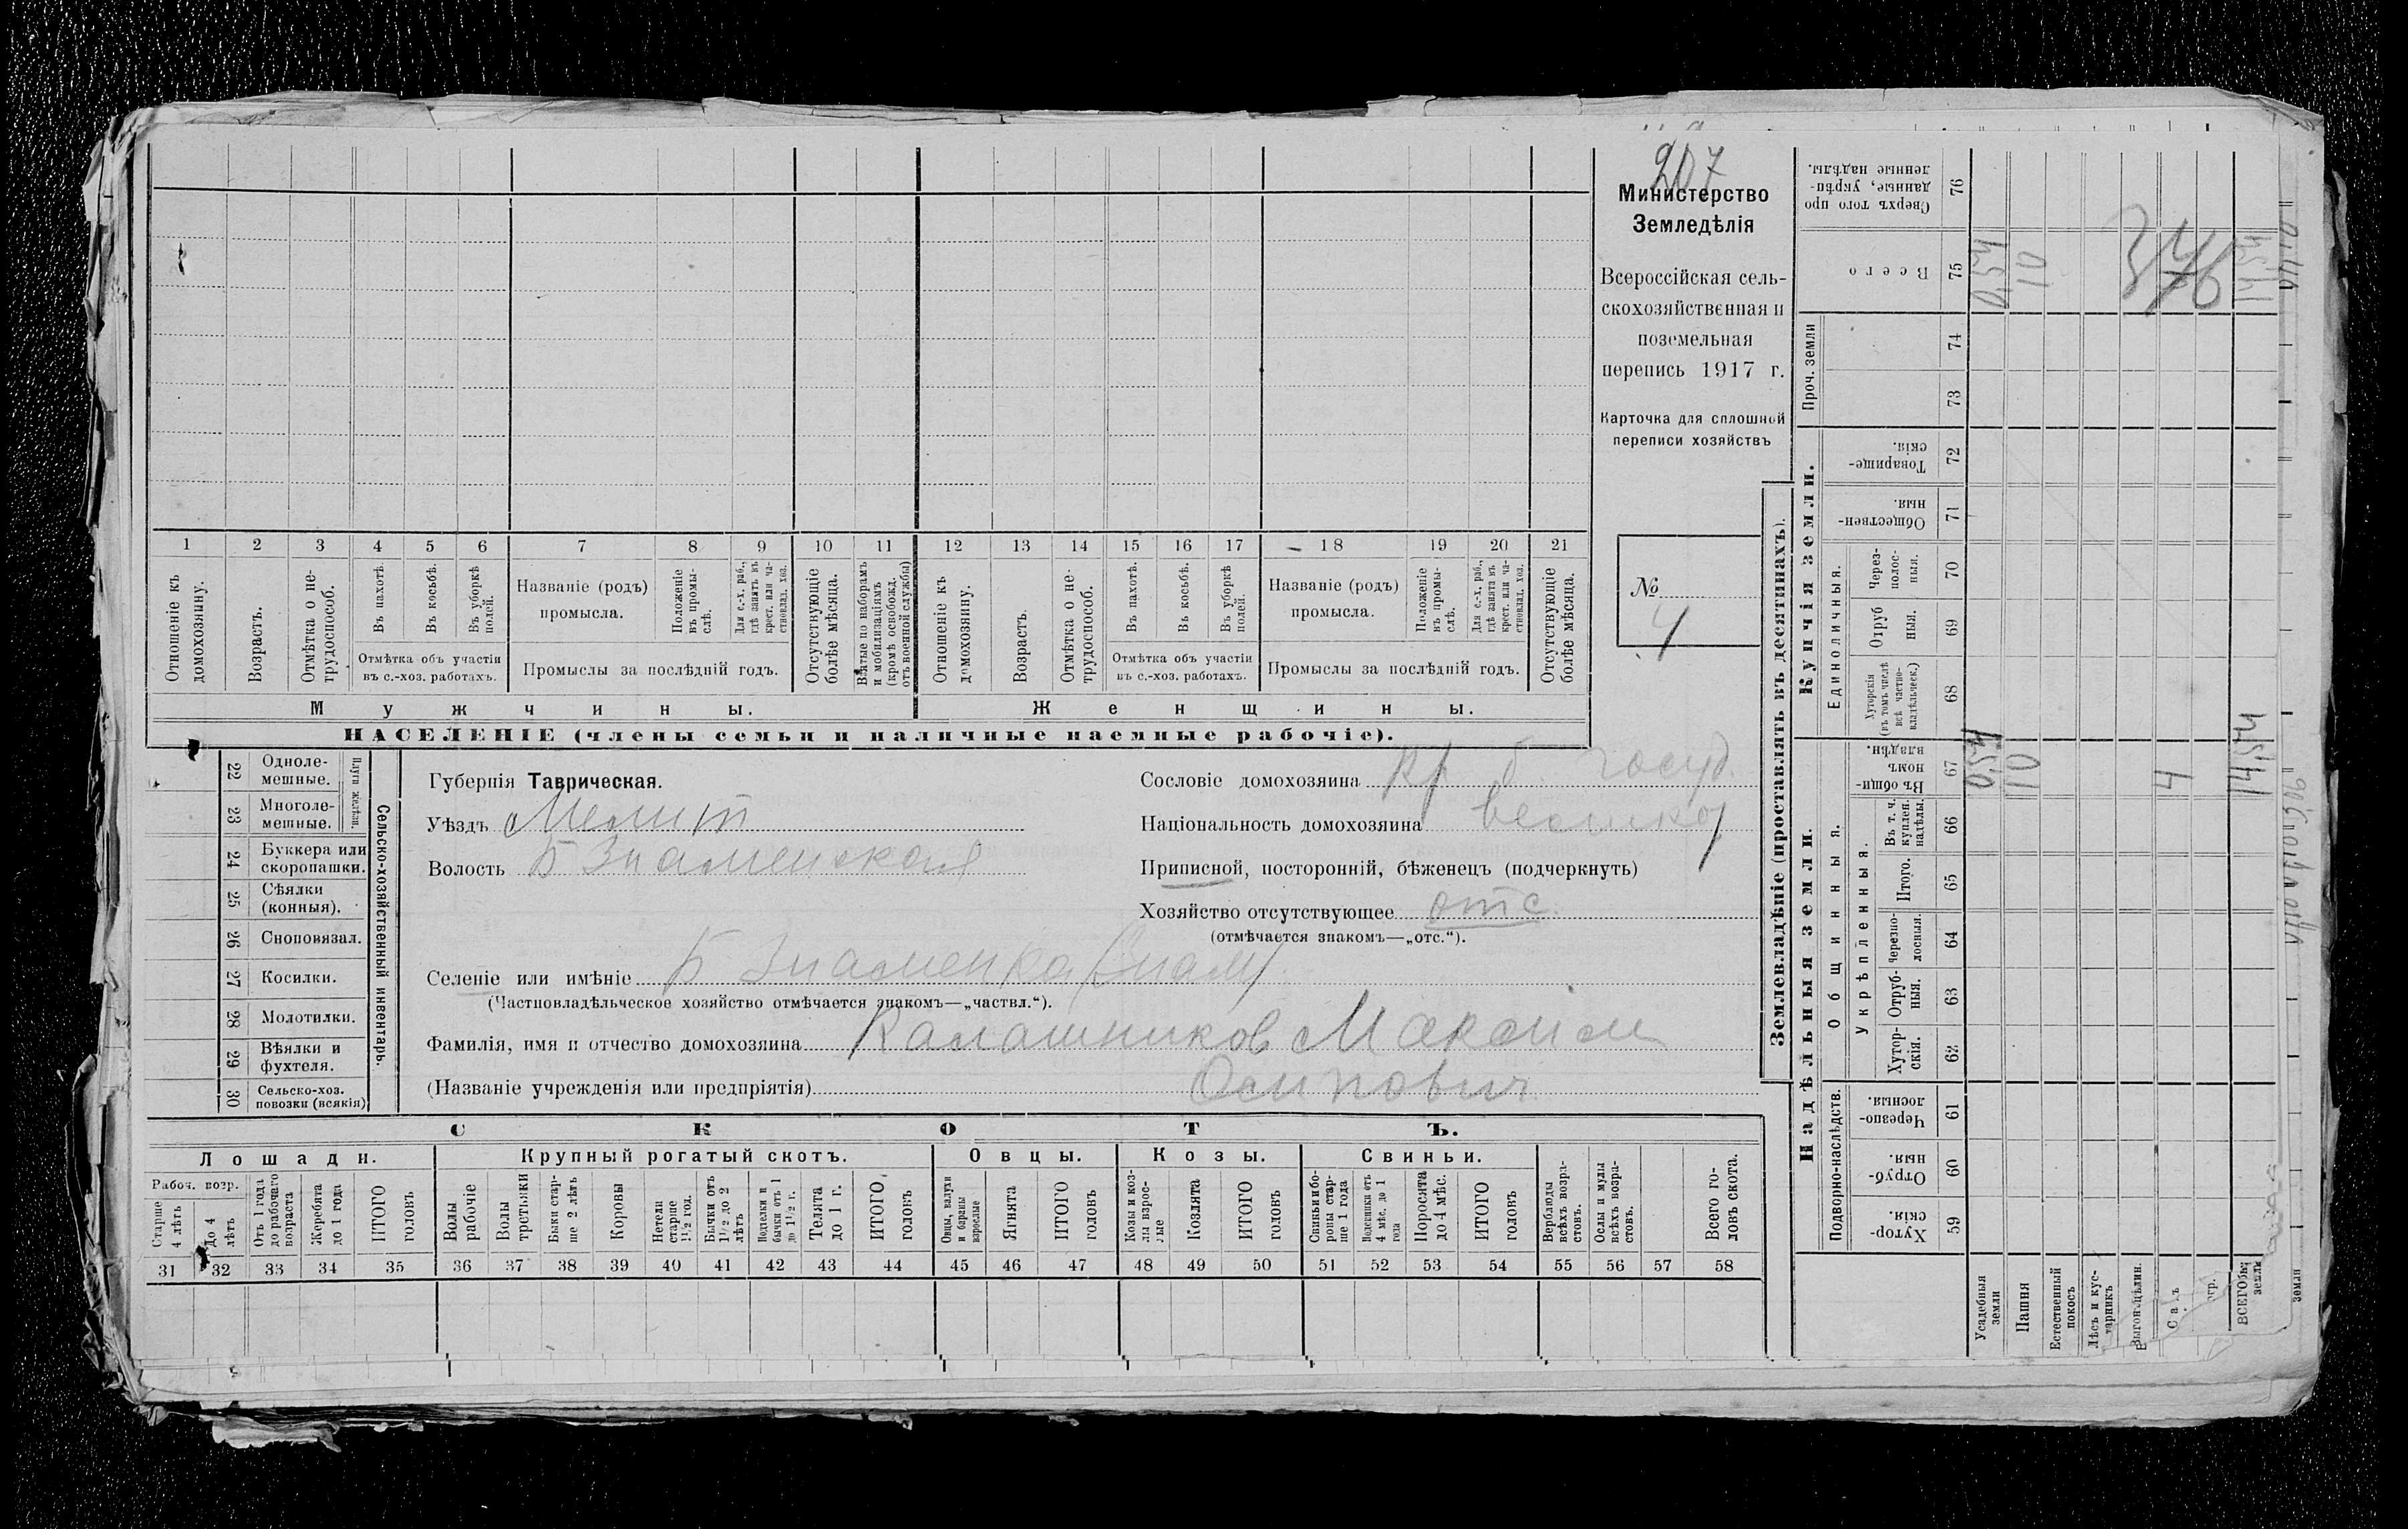 207
Министерство
Земледѣлія
Всероссійская сель-
скохозяйственная и
поземельная
перепись 1917 г.
Карточка для сплошной
переписи хозяйствъ
№
4
1 2 3 4 5 6 7 8 9 10 11 12 13 14 15 16 17 18 19 20 21
Отношеніе къ домохозяину.
Возрастъ.
Отмѣтка о не-трудоспособ.
Въ пахотѣ.
Въ косьбѣ.
Въ уборкѣ полей.
Отмѣтка объ участіи
въ с.-хоз. работахъ.
Названіе (родъ)
промысла.
Положеніе въ промы-слѣ.
Для с.-х. раб., гдѣ занятъ въ крест. или ча-стновлад. хоз.
Промыслы за послѣдній годъ.
Отсутствующіе болѣе мѣсяца.
Взятые по наборамъ и мобилизаціямъ (кромѣ освобожд. отъ военной службы)
Отношеніе къ домохозяину.
Возрастъ.
Отмѣтка о не-трудоспособ.
Въ пахотѣ.
Въ косьбѣ.
Въ уборкѣ полей.
Отмѣтка объ участіи
въ с.-хоз. работахъ.
Названіе (родъ)
промысла.
Положеніе въ промы-слѣ.
Для с.-х. раб., гдѣ занята въ крест. или ча-стновлад. хоз.
Промыслы за послѣдній годъ.
Отсутствующіе болѣе мѣсяца.
Мужчины.
Женщины.
НАСЕЛЕНІЕ (члены семьи и наличные наемные рабочіе).
Сельско-хозяйственный инвентарь.
Плуги желѣзн.
22 Одноле-мешные.
23 Многоле-мешные.
24 Буккера или скоропашки.
25 Сѣялки (конныя).
26 Сноповязал.
27 Косилки.
28 Молотилки.
29 Вѣялки и фухтеля.
30 Сельско-хоз. повозки (всякія)
Губернія Таврическая.
Уѣздъ Мелит
Волость Б Знаменская
Сословіе домохозяина кр б. госуд.
Національность домохозяина великор
Приписной, посторонній, бѣженецъ (подчеркнуть)
Хозяйство отсутствующее отс.
(отмѣчается знакомъ—„отс.“).
Селеніе или имѣніе Б Знаменка (Знам)
(Частновладѣльческое хозяйство отмѣчается знакомъ—„частвл.“).
Фамилія, имя и отчество домохозяина Калашников Максим
(Названіе учрежденія или предпріятія) Осипович
СКОТЪ.
Лошади.
Крупный рогатый скотъ.
Овцы.
Козы.
Свиньи.
Рабоч. возр.
Старше 4 лѣтъ
До 4 лѣтъ
Отъ 1 года до рабочаго возраста
Жеребята до 1 года
ИТОГО головъ
Волы рабочіе
Волы третьяки
Быки стар-ше 2 лѣтъ
Коровы
Нетели старше 1½ год.
Бычки отъ 1½ до 2 лѣтъ
Подтелки и бычки отъ 1 до 1½ г.
Телята до 1 г.
ИТОГО головъ
Овцы, валухи и бараны взрослые
Ягнята
ИТОГО головъ
Козы и коз-лы взрос-лые
Козлята
ИТОГО головъ
Свиньи и бо-ровы стар-ше 1 года
Подсвинки отъ 4 мѣс. до 1 года
Поросята до 4 мѣс.
ИТОГО головъ
Верблюды всѣхъ возра-стовъ.
Ослы и мулы всѣхъ возра-стовъ.
Всего го-ловъ скота.
31 32 33 34 35 36 37 38 39 40 41 42 43 44 45 46 47 48 49 50 51 52 53 54 55 56 57 58
Землевладѣніе (проставлять въ десятинахъ).
Надѣльныя земли.
Купчія земли.
Проч. земли
Подворно-наслѣдств.
Общинныя.
Укрѣпленныя.
Единоличныя.
Хутор-скія. 59
Отруб-ныя. 60
Черезпо-лосныя. 61
Хутор-скія. 62
Отруб-ныя. 63
черезпо-лосныя. 64
Итого. 65
Въ т. ч. куплен. надѣлы. 66
Въ общи-номъ владѣн. 67
Хуторскія (въ томъ числѣ всѣ частно-владѣльческ.) 68
Отруб ныя. 69
Через-полос-ныя. 70
Обществен-ныя. 71
Товарище-скія. 72
73
74
Всего 75
Сверхъ того про данные, укрѣп-ленные надѣлы. 76
Усадебныя земли 0,54 0,54
Пашня 10 10
Естественный покосъ
Лѣсъ и кус-тарникъ
Выгон. цѣлин.
4
ВСЕГО земли 14,54 14,54
346
земли